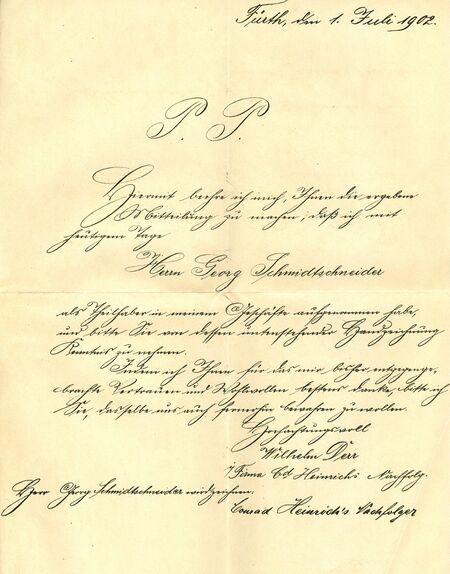 Fürth, den 1. Juli 1902.
P. P.
Hiermit beehre ich mich, Ihnen die ergebene
Mitteilung zu machen, daß ich mit
heutigem Tage
Herrn Georg Schmidtschneider
als Theilhaber in meinem Geschäfte aufgenommen habe,
und bitte Sie von dessen untenstehender Handzeichnung
Kenntnis zu nehmen.
Indem ich Ihnen für das mir bisher entgegenge-
brachte Vertrauen und Wohlwollen bestens danke, bitte ich
Sie, dasselbe uns auch fernerhin bewahren zu wollen.
Hochachtungsvoll
Wilhelm Derr
Firma Cd Heinrich's Nachfolg.
Herr Georg Schmidtschneider wird zeichnen:
Conrad Heinrich's Nachfolger